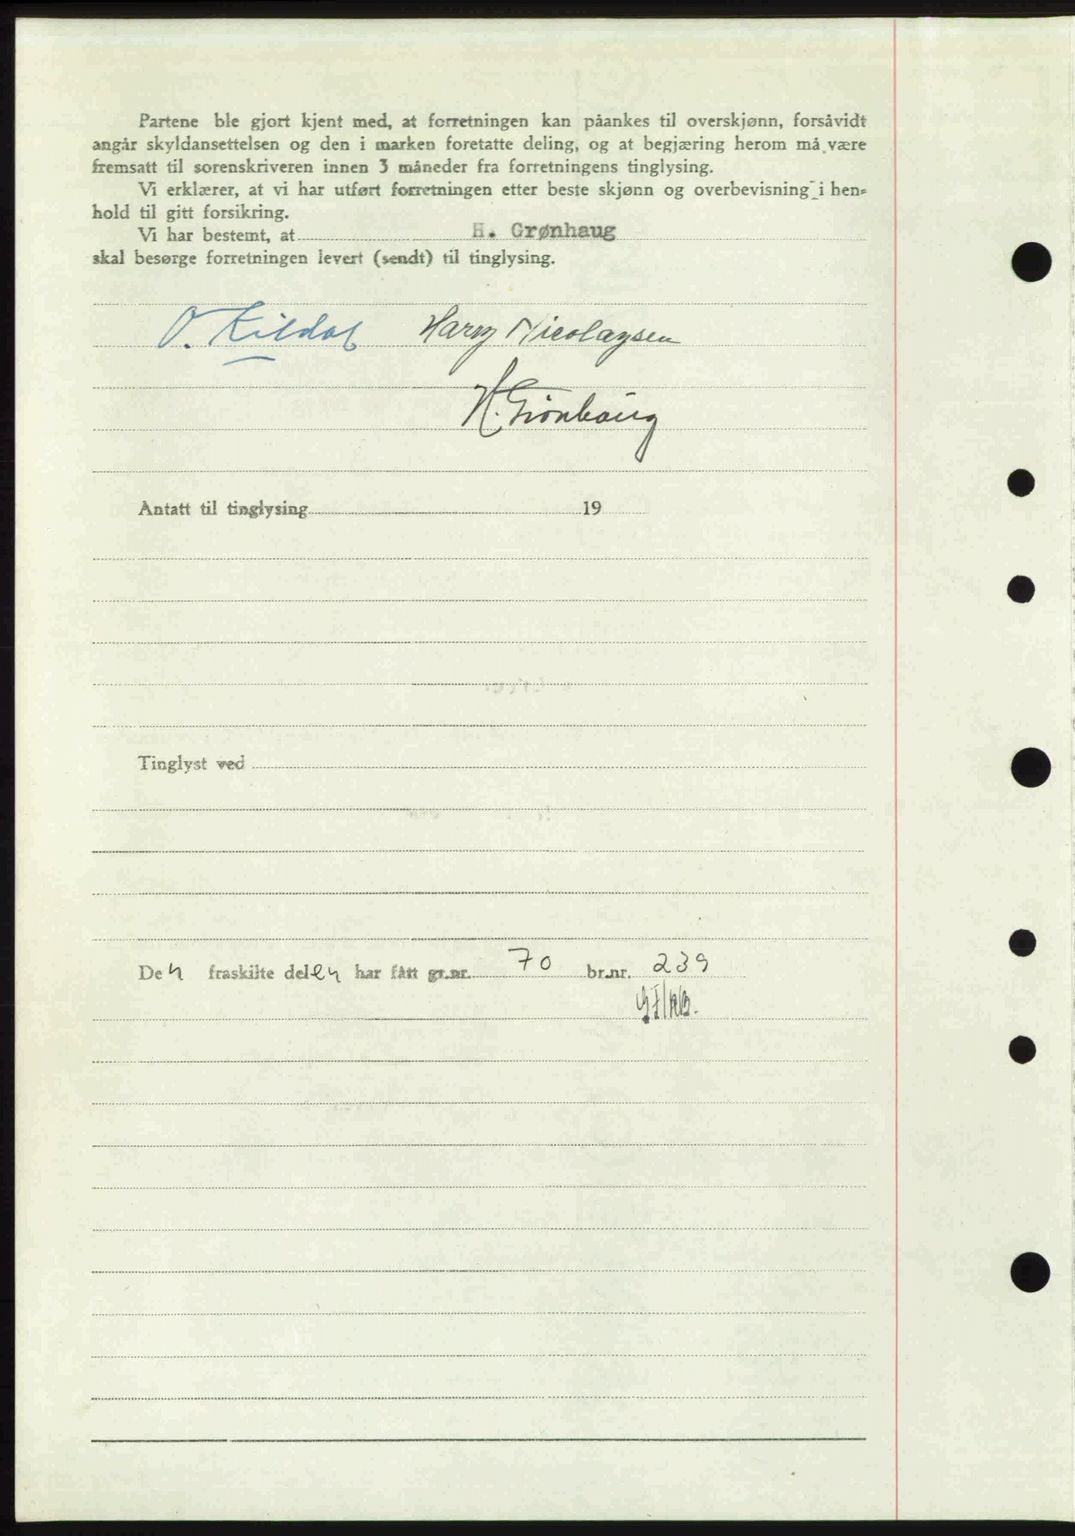 Partene ble gjort kjent med, at forretningen kan påankes til overskjønn, forsåvidt
angår skyldansettelsen og den i marken foretatte deling, og at begjæring herom må være
fremsatt til sorenskriveren innen 3 måneder fra forretningens tinglysing.
Vi erklærer, at vi har utført forretningen etter beste skjønn og overbevisning i hen-
hold til gitt forsikring.
Vi har bestemt, at H. Grønhaug
skal besørge forretningen levert (sendt) til tinglysing.
O. Kildal Harry Nicolaysen
H. Grønhaug
Antatt til tinglysing 19
Tinglyst ved
Den fraskilte delen har fått gr.nr. 70 br.nr. 239